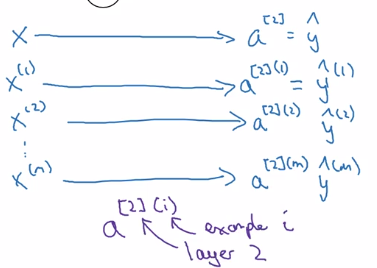 x → a^[2] = ŷ
x^(1) → a^[2](1) = ŷ^(1)
x^(2) → a^[2](2) ŷ^(2)
⋮
x^(n) → a^[2](m) ŷ^(m)
a^[2](i) example i
layer 2